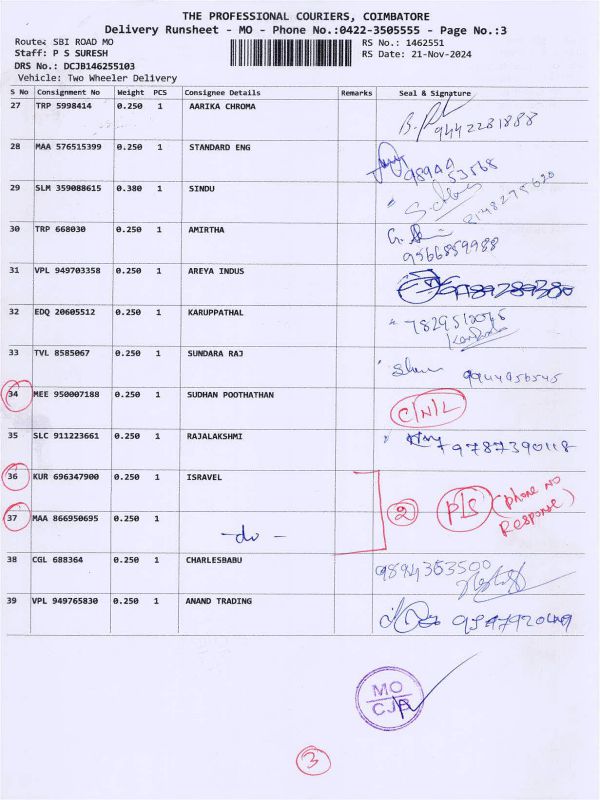 THE PROFESSIONAL COURIERS, COIMBATORE
Delivery Runsheet - MO - Phone No.:0422-3505555 - Page No.:3
Route: SBI ROAD MO
RS No.: 1462551
Staff: P S SURESH
RS Date: 21-Nov-2024
DRS No.: DCJB146255103
Vehicle: Two Wheeler Delivery
S No Consignment No Weight PCS Consignee Details Remarks Seal & Signature
27 TRP 5998414 0.250 1 AARIKA CHROMA 9442281888
28 MAA 576515399 0.250 1 STANDARD ENG
29 SLM 359088615 0.380 1 SINDU
30 TRP 668030 0.250 1 AMIRTHA 9566859988
31 VPL 949703358 0.250 1 AREYA INDUS
32 EDQ 20605512 0.250 1 KARUPPATHAL
33 TVL 8585067 0.250 1 SUNDARA RAJ 9944956545
34 MEE 950007188 0.250 1 SUDHAN POOTHATHAN C/N/L
35 SLC 911223661 0.250 1 RAJALAKSHMI 9787390118
36 KUR 696347900 0.250 1 ISRAVEL
2 P/S (phone no Response)
37 MAA 866950695 0.250 1 -do-
38 CGL 688364 0.250 1 CHARLESBABU 9894353500
39 VPL 949765830 0.250 1 ANAND TRADING
MO
CJB
3